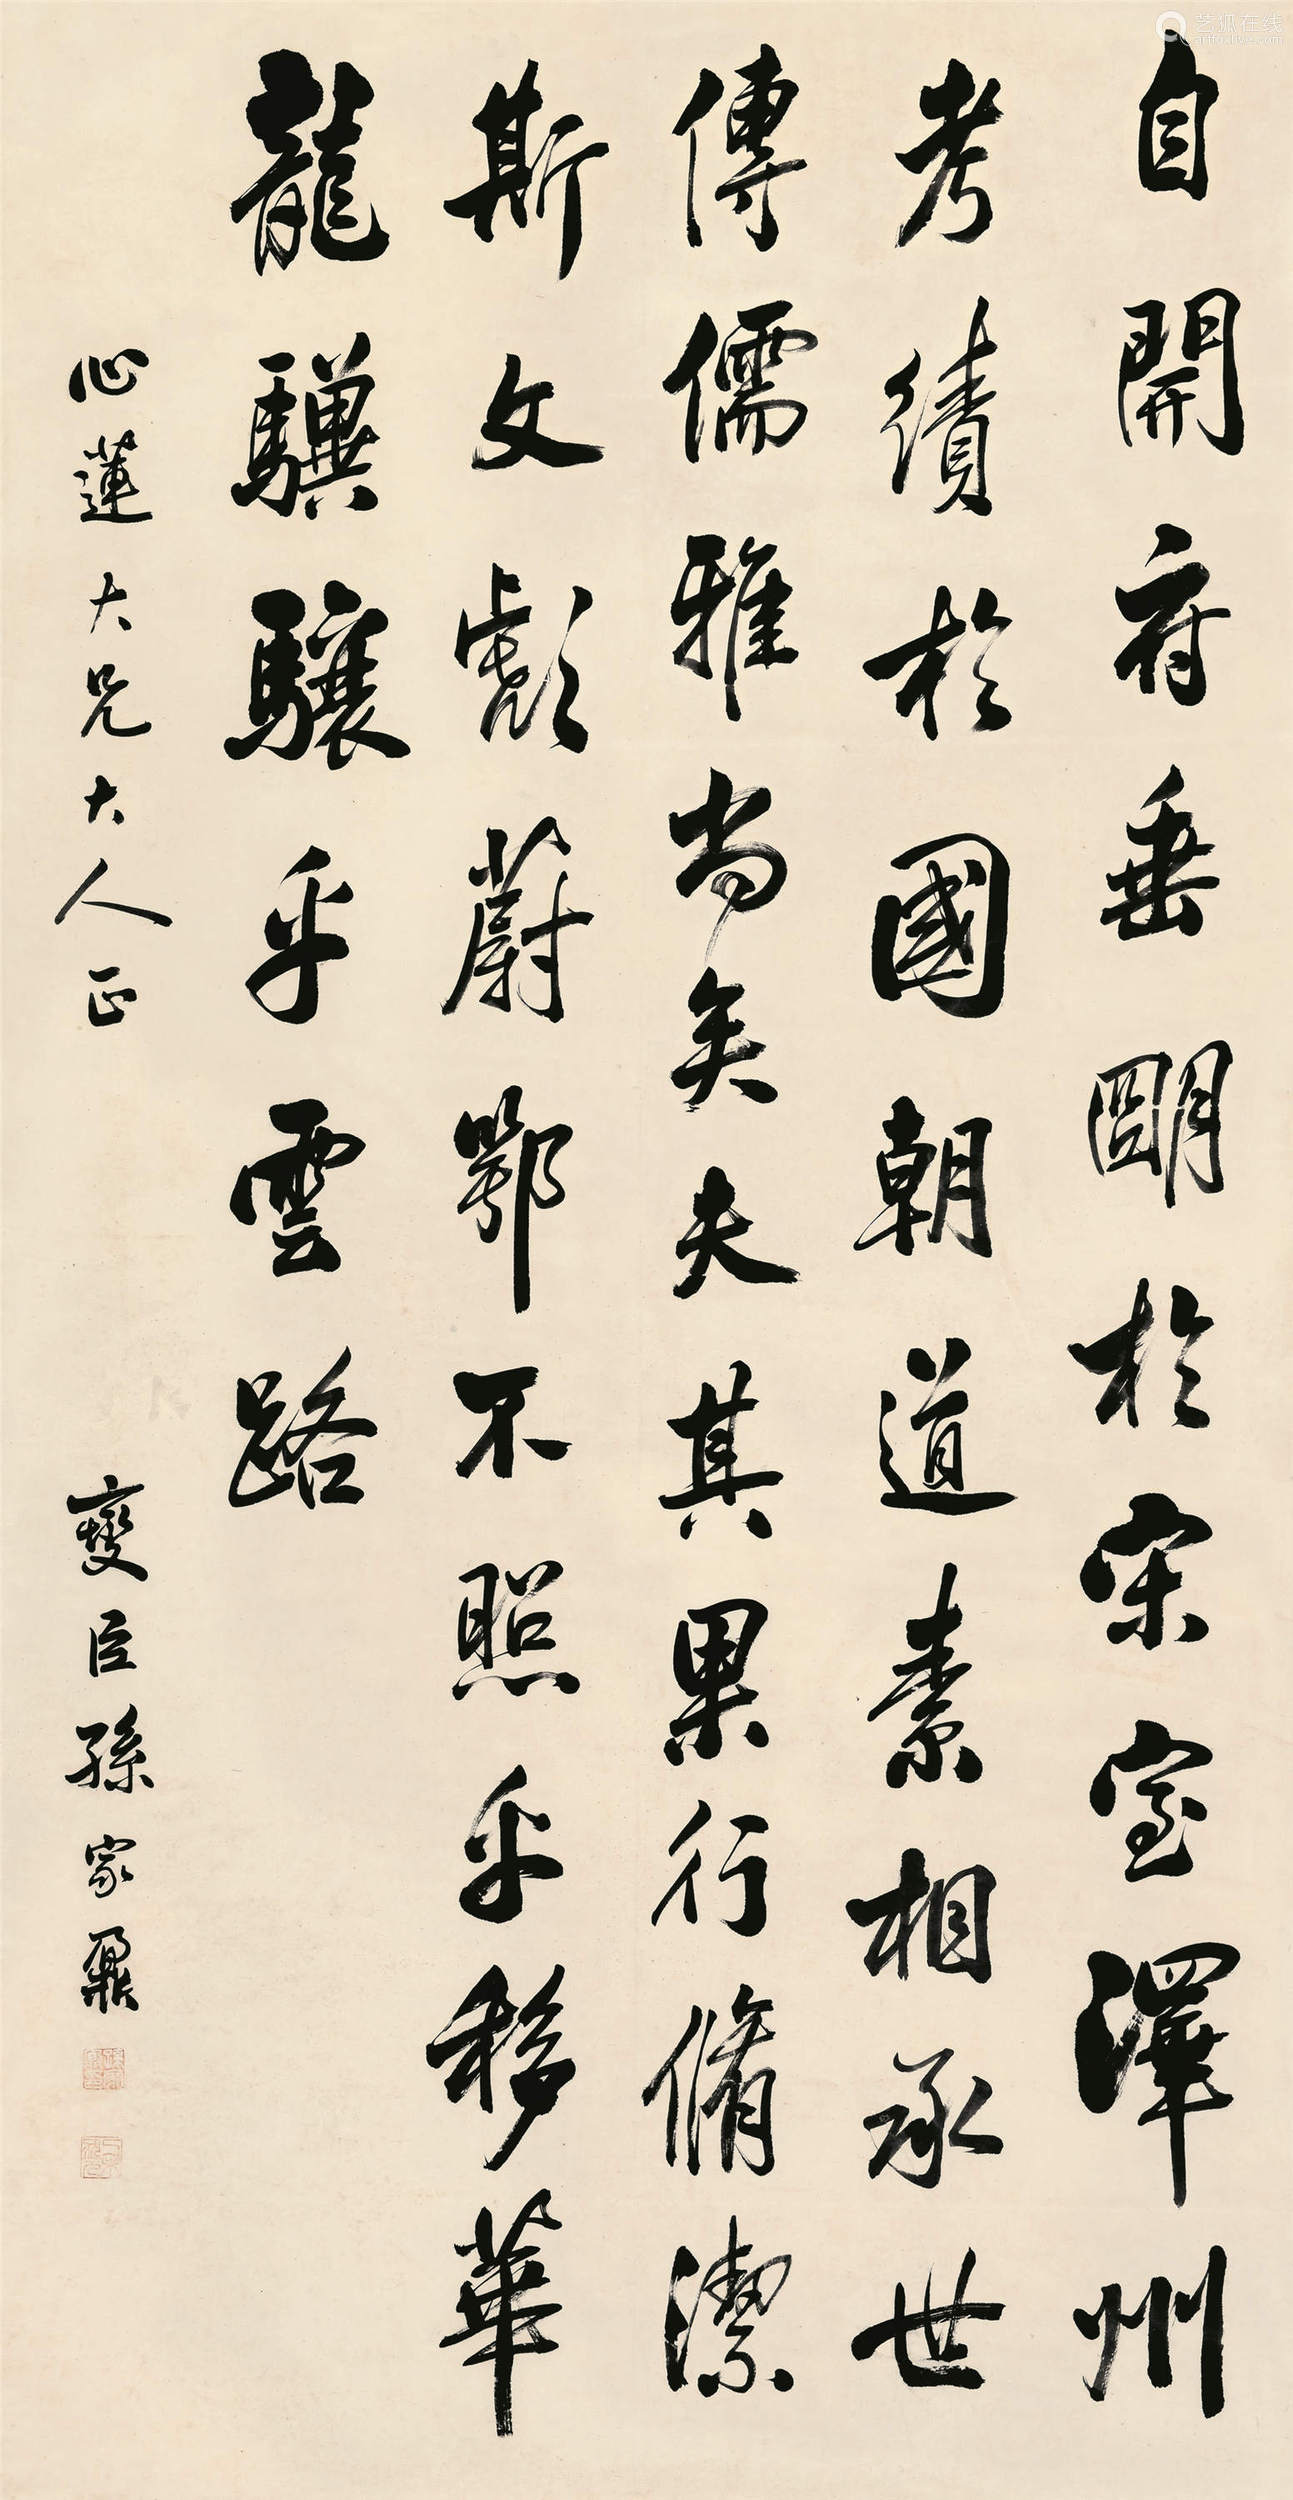 自開府垂明於宋室澤州
考績於國朝道素相承世
傳儒雅尚矣夫其果行脩潔
斯文彪蔚鄂不照乎移華
龍驥驤乎雲路
心蓮大兄大人正
燮臣孫家鼐
艺狐在线
artfoxlive.com